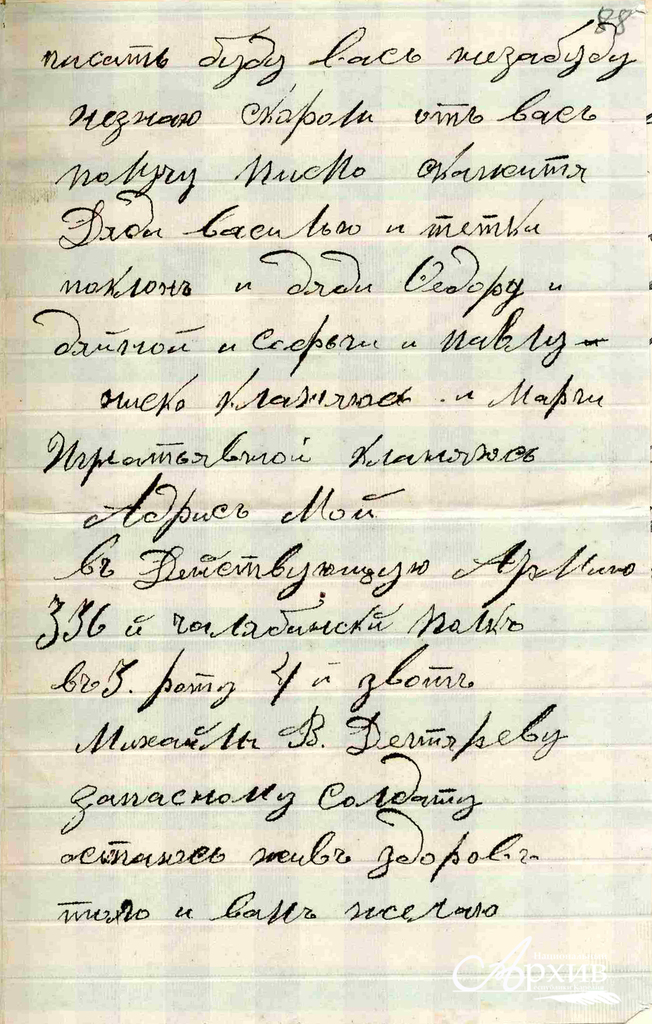 88
писать буду васъ незабуду
незнаю скароли отъ васъ
получу писмо скажитя
Дяди василью и тетки
поклонъ и дяди Федору и
дяйной и софьи и павлу
ниско кланяюсь и Марьи
Игнатьявной кланяюсь
Адрисъ Мой
въ Действующую Армию
336 й чалябински полкъ
въ 3. роту 4 й звотъ
Михайлы В. Дегтяреву
запасному Солдату
остаюсь живъ здоровъ
тиго и вамъ желаю
Национальный
Архив